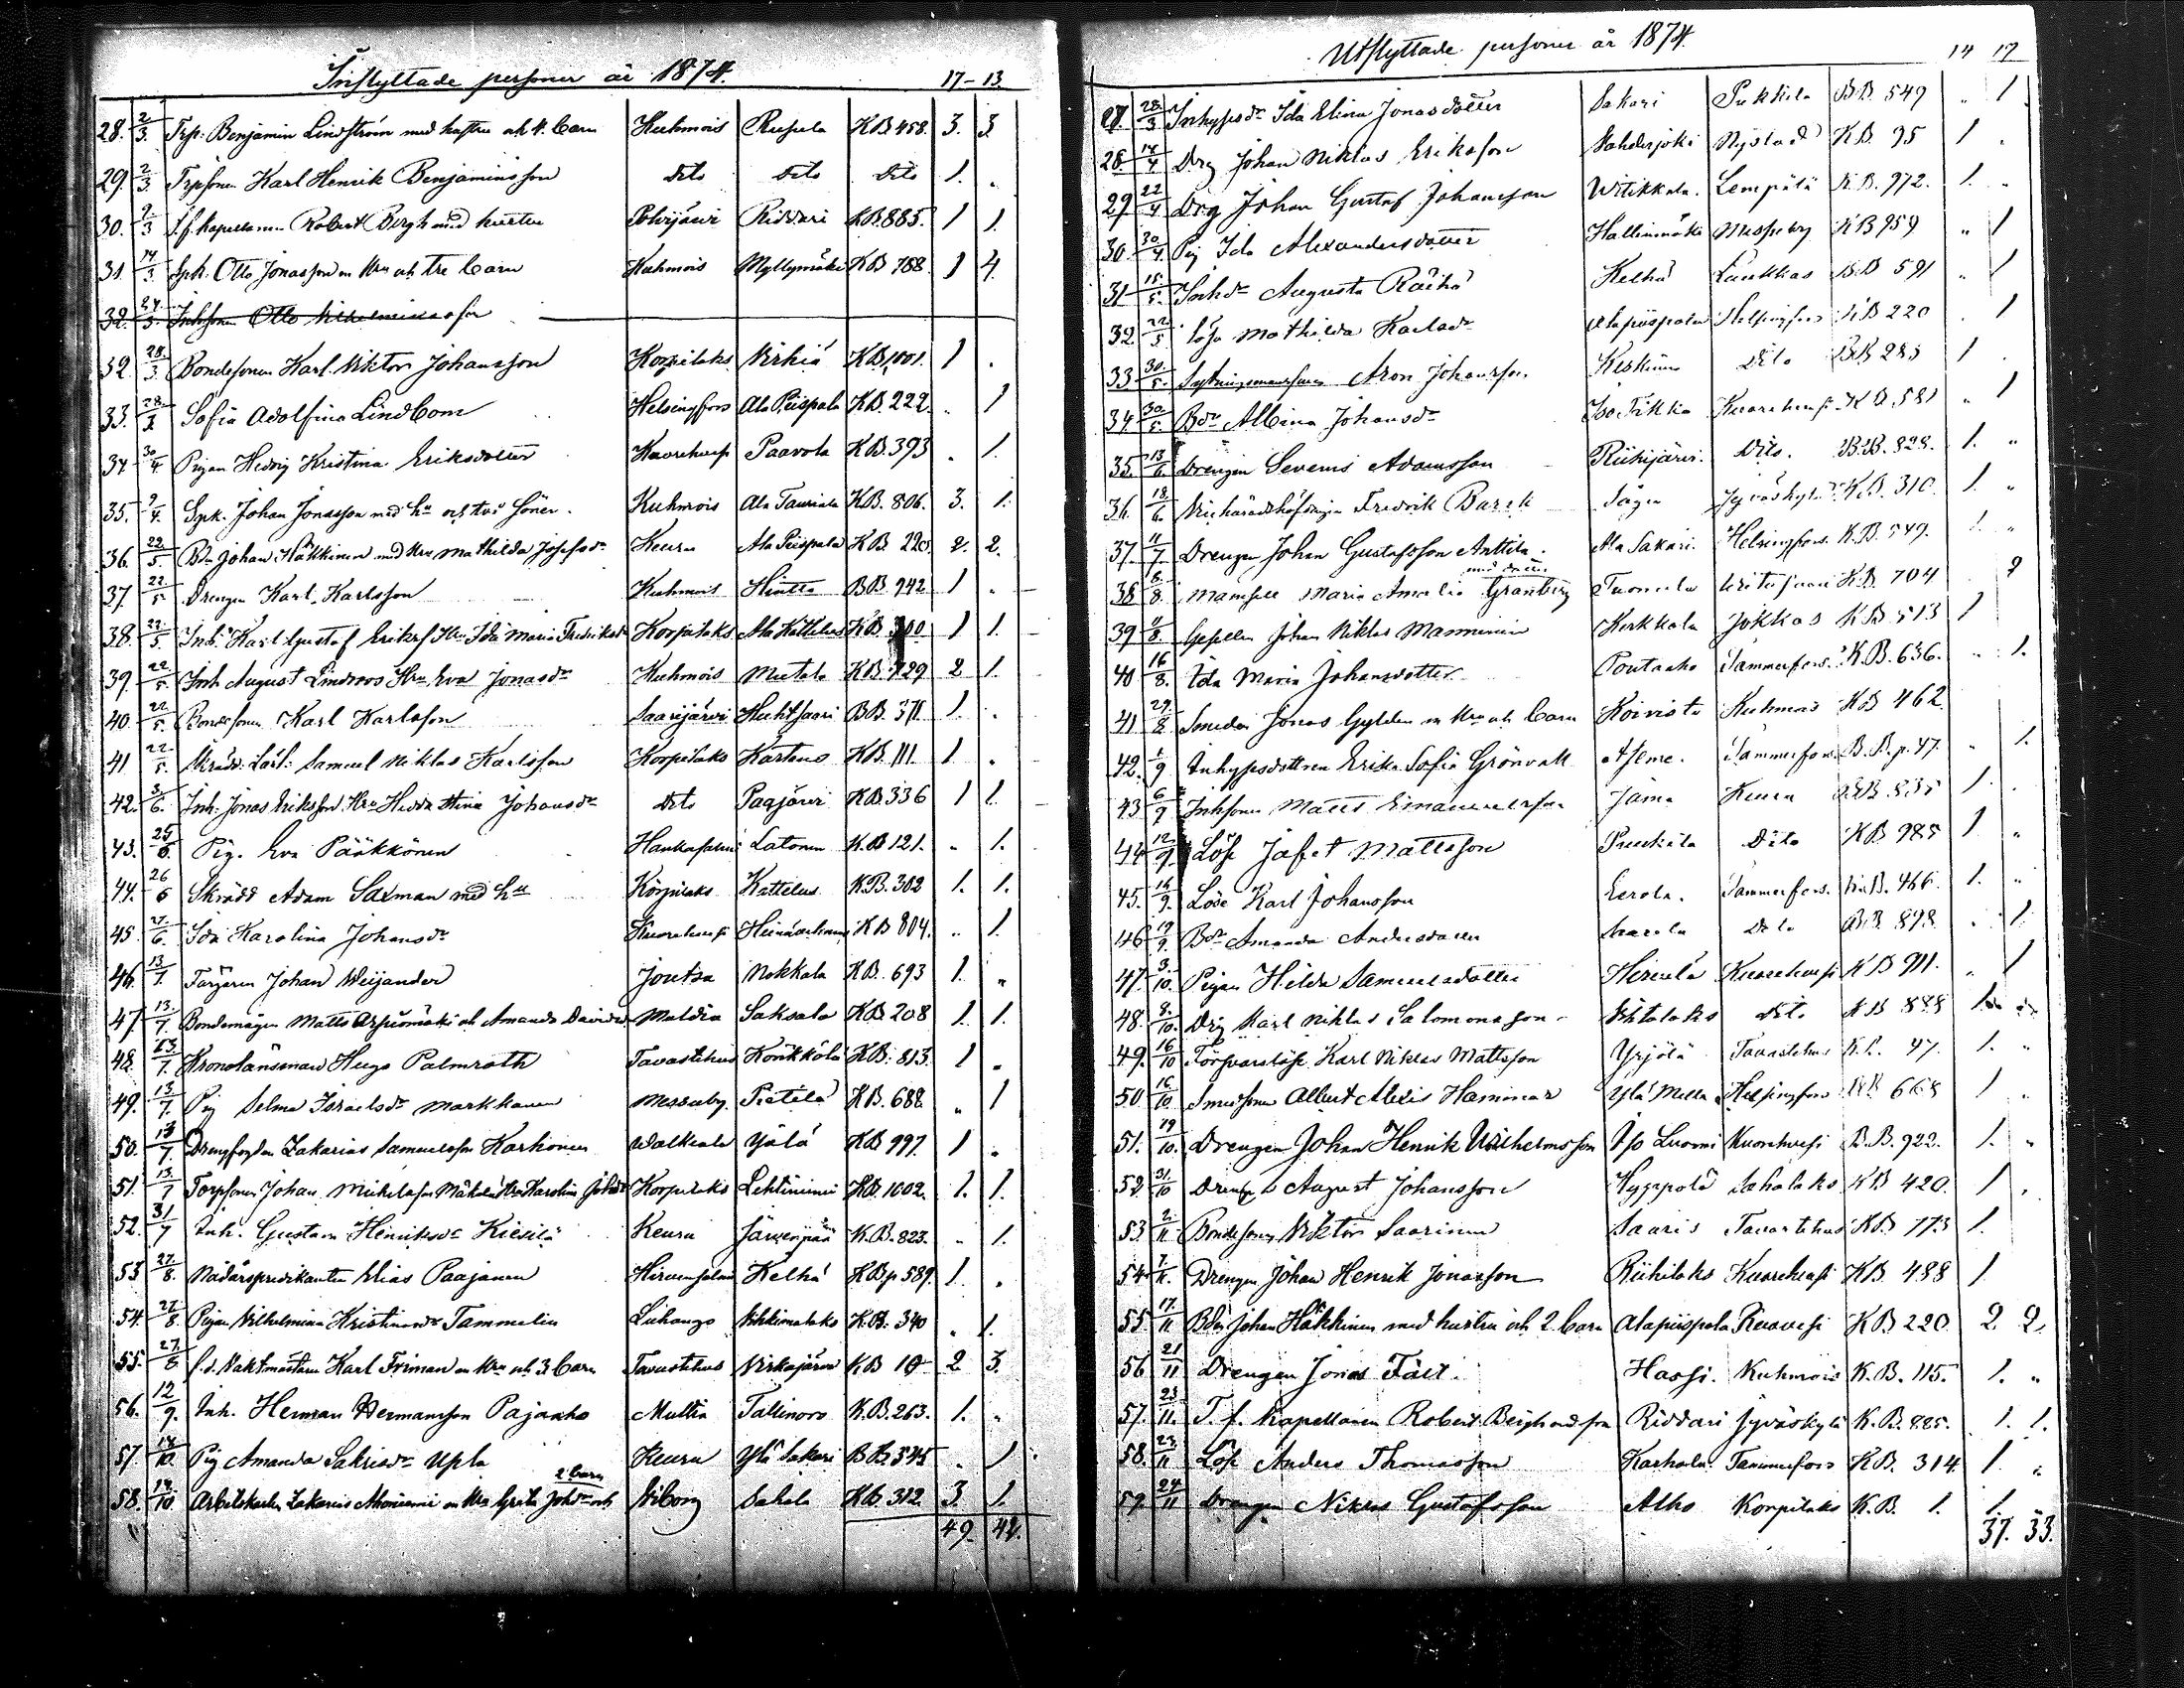 Inflyttade personer år 1874. 17-13.
28. 2/3. Trp. Benjamin Lindström med hustru och 4. barn Kuhmois Ruhula KB 458. 3. 3.
29. 2/3 Trpsonen Karl Henrik Benjaminsson dito dito dito 1. "
30. 9/3 T.f. Kapellanen Robert Bergh med hustru Riddari KB. 885. 1 1.
31. 14/3. Spk. Otto Jonasson m. Hru och tre barn Kuhmois Myllymäki KB 788. 1 4.
32. 24/3. Inhsonen Otto
32. 28/3. Bondesonen Karl Viktor Johansson Korpilaks KB. 1001. 1 "
33. 28/3 Sofia Adolfina Lindbom Helsingfors Ala Piispala KB. 222. " 1
34 30/4. Pigan Hedvig Kristina Eriksdotter Kuorehvesi Paavola KB 393 " 1.
35. 9/4. Spk. Johan Jonasson med hu och två söner. Kuhmois Ala Tauriala KB. 806. 3. 1.
36. 22/5. Bdn Johan Häkkinen med Hru Mathilda Josefsdr Keuru Ala Piispala KB 220. 2. 2.
37. 22/5 Drengen Karl Karlsson Kuhmois Hintta BB. 942 1 "
38. 22/5. Inh. Karl Gustaf Eriksf Hru Ida Maria Fredriksdr Korpilaks Ala Kattelus KB 300 1 1.
39. 22/5. Inh August Lindroos Hru Eva Jonasdr Kuhmois Mutala KB. 729 2 1.
40. 22/5. Bondesonen Karl Karlsson Saarijärvi Huhtsaari BB. 371. 1. "
41 22/5. Skrädd. Lärl. Samuel Niklas Karlsson Korpilaks Kartano KB. 111. 1 "
42. 3/6. Inh. Jonas Eriksson Hru Hedda Stina Johansdr dito Paajärvi KB. 336 1 1.
43. 25/6. Pig. Eva Pääkkönen Hankasalmi Latonen K.B 121. " 1.
44. 26/6 Skrädd Adam Saxman med hu Korpilaks Kattelus K.B. 302 1. 1.
45. 27/6. Ida Karolina Johansdr Kuorehvesi KB 804. " 1.
46. 13/7. Färgaren Johan Weijander Joutsa Nokkala KB. 693 1. "
47 13/7. Bondemågen Matts och Amanda Multia Saksala KB 208 1. 1.
48. 13/7. Kronolänsman Hugo Palmroth Tavastehus Korkkola KB. 813. 1 "
49. 13/7. Pig Selma Israelsdr Markkanen Messuby. Pietilä KB. 688. " 1
50. 13/7. Drengfogden Zakarias Samuelsson Karhonen Walkiala Yölä KB 997. 1 "
51. 13/7 Torpsonen Johan Mickelsson Mäkelä Hru Karolina Johdr Korpilaks Lehtiniemi KB. 1002. 1. 1.
52. 31/7 Inh. Gustava Henriksdr Kiesilä Keuru Järvenpää K.B. 823. " 1.
53 27/8. Nådårspredikanten Elias Paajanen Hirvensalmi Kelhä KB p 589. 1. "
54. 27/8. Pigan Vilhelmina Kristinadr Tammelin Luhango KB. 340 " 1.
55. 27/8 f.d. Vaktmästaren Karl Friman m Hru och 3 barn Tavastehus Virkajärvi KB 10 2 3.
56. 12/9. Inh. Herman Hermansson Pajaaho Multia Tallinoro K.B. 263. 1. "
57. 14/10. Pig Amanda Sakrisdr Upla Keuru Ylä Sakari BB 545 " 1
58. 14/10. Arbetskarlen Zakarias Ahoniemi m Hru Greta Johdr och 2 barn Wiborg Sahala KB. 312. 3. 1.
49. 42.
Utflyttade personer år 1874. 14 17
27. 28/3 Inhypsdr Ida Elina Jonasdotter Sakari Pukkila BB. 549 " 1
28. 14/4 Drg Johan Niklas Eriksson Sahdesjoki Nystad KB. 95 1 "
29 22/4 Drg Johan Gustaf Johansson Witikkala. Lempälä KB. 972. 1. "
30. 30/4 Pig Ida Alexandersdotter Hallinmäki Messuby KB 959 " 1
31 15/5. Inhdr Augusta Räihä Kelhä Luukkas BB 591 " 1
32 22/5 Lösa Mathilda Karlsdr Alapiispala Helsingfors KB 220 " 1
33 30/5. Sytningsmanssonen Aron Johansson Keskinen Dito BB 283 1 "
34 30/5. Bdr Albina Johansdr Iso Kuorehvesi KB. 581 " 1
35. 13/6. Drengen Severus Adamsson Riihijärvi. Dito. BB. 828. 1. "
36. 18/6. Vicehäradshöfdingen Fredrik Barck Sågen Jyväskylä KB. 310. 1. "
37. 11/7. Drengen Johan Gustafsson Anttila. Ala Sakari. Helsingfors K.B. 549. 1. "
38 8/8. Mamsell Maria Amalia Granberg med dotter Tuomela KB 704 2
39 11/8. Gesellen Johan Niklas Manninen Kerkkola Jokkas KB 513 1
40 16/8. Ida Maria Johansdotter Poutaaho Tammerfors K.B. 636. " 1.
41 29/8 Smeden Jonas Gyldén m Hru och barn Koivisto Kuhmois KB 462
42. 1/9 Inhypsdottren Erika Sofia Grönvall Tammerfors B.B. p. 47. " 1.
43 6/9 Inhsonen Matts Emanuelsson Jämä Keuru BB. 835 1.
44 12/9. Löse Jafet Mattsson Puukila Dito KB 985 1 "
45. 16/9. Löse Karl Johansson Eerola. Tammerfors. KB. 466. 1. "
46 19/9. Bdr Amanda Andersdotter Dito BB 898 " 1
47. 3/10. Pigan Hilda Samuelsdotter Kuorehvesi KB 911. " 1
48. 9/10. Drg Karl Niklas Salomonsson dito KB 888 1
49. 16/10 Försvarslöse Karl Niklas Mattsson Yrjölä Tavastehus 47. 1. "
50. 16/10 Smedsonen Albert Alexis Hammar Ylä Mella Helsingfors BB 668 1 "
51. 19/10. Drengen Johan Henrik Wilhelmsson Iso Luomi Kuorehvesi B.B. 922. 1. "
52. 31/10 Drengen August Johansson Hyppölä Sahalaks KB 420. 1 "
53 2/11. Bondesonen Viktor Saarinen Saaris Tavastehus KB. 773 1.
54. 7/11. Drengen Johan Henrik Jonasson Riihilaks Kuorehvesi KB. 488 1
55 17/11 Bdn Johan Häkkinen med hustru och 2 barn Alapiispala Ruovesi KB 220 2. 2.
56 21/11 Drengen Jonas Fält. Hassi. Kuhmois K.B. 115. 1. "
57. 23/11. T. f. Kapellanen Robert Bergh med fru Riddari Jyväskylä K.B. 885. 1. 1.
58. 23/11 Löse Anders Thomasson Karhula Tammerfors KB. 314. 1. "
59. 24/11 Drengen Niklas Gustafsson Alho Korpilaks K.B. 1. 1.
37. 33.